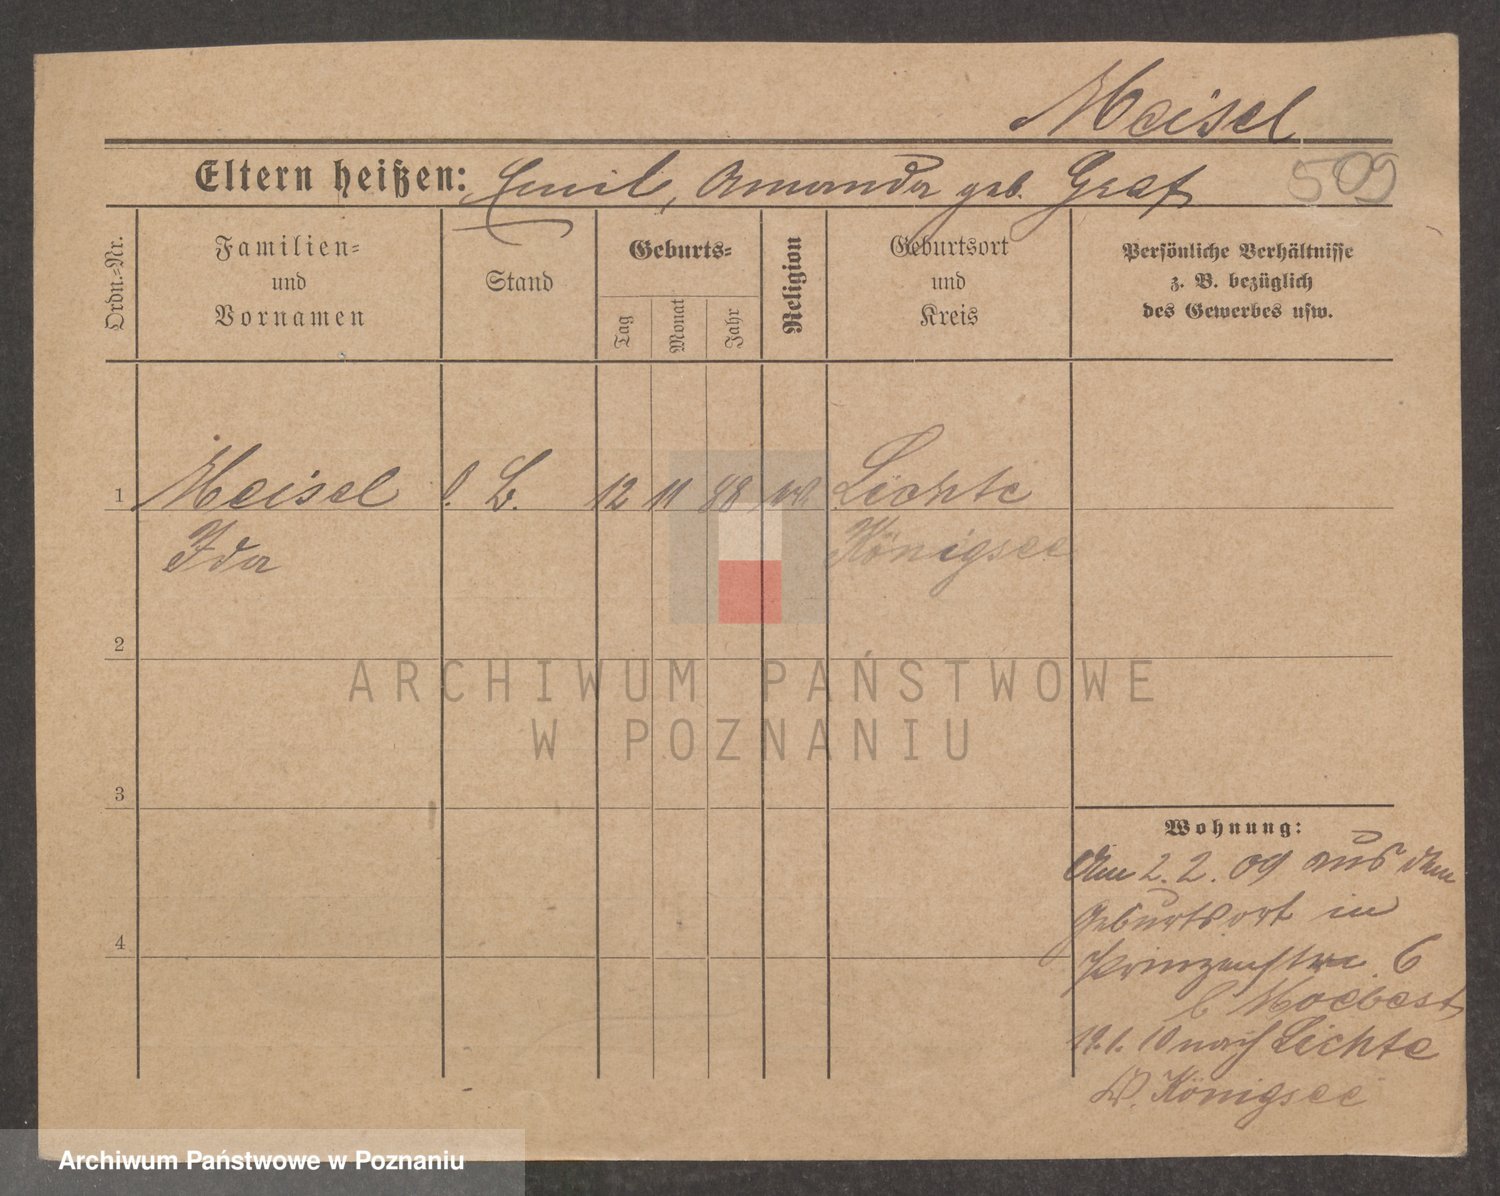 Meisel
Eltern heißen: Emil, Amanda geb. Graf
509
Ordn.-Nr.
Familien-
und
Vornamen
Stand
Geburts-
Tag
Monat
Jahr
Religion
Geburtsort
und
Kreis
Persönliche Verhältnisse
z. B. bezüglich
des Gewerbes usw.
1 Meisel 12 11 88 Lichte
Ida Königsee
2
3
4
ARCHIWUM PAŃSTWOWE
W POZNANIU
Wohnung:
Am 2.2.09 aus dem
Geburtsort in
Prinzenstr. 6
b
19.1.10 nach Lichte
Königsee
Archiwum Państwowe w Poznaniu